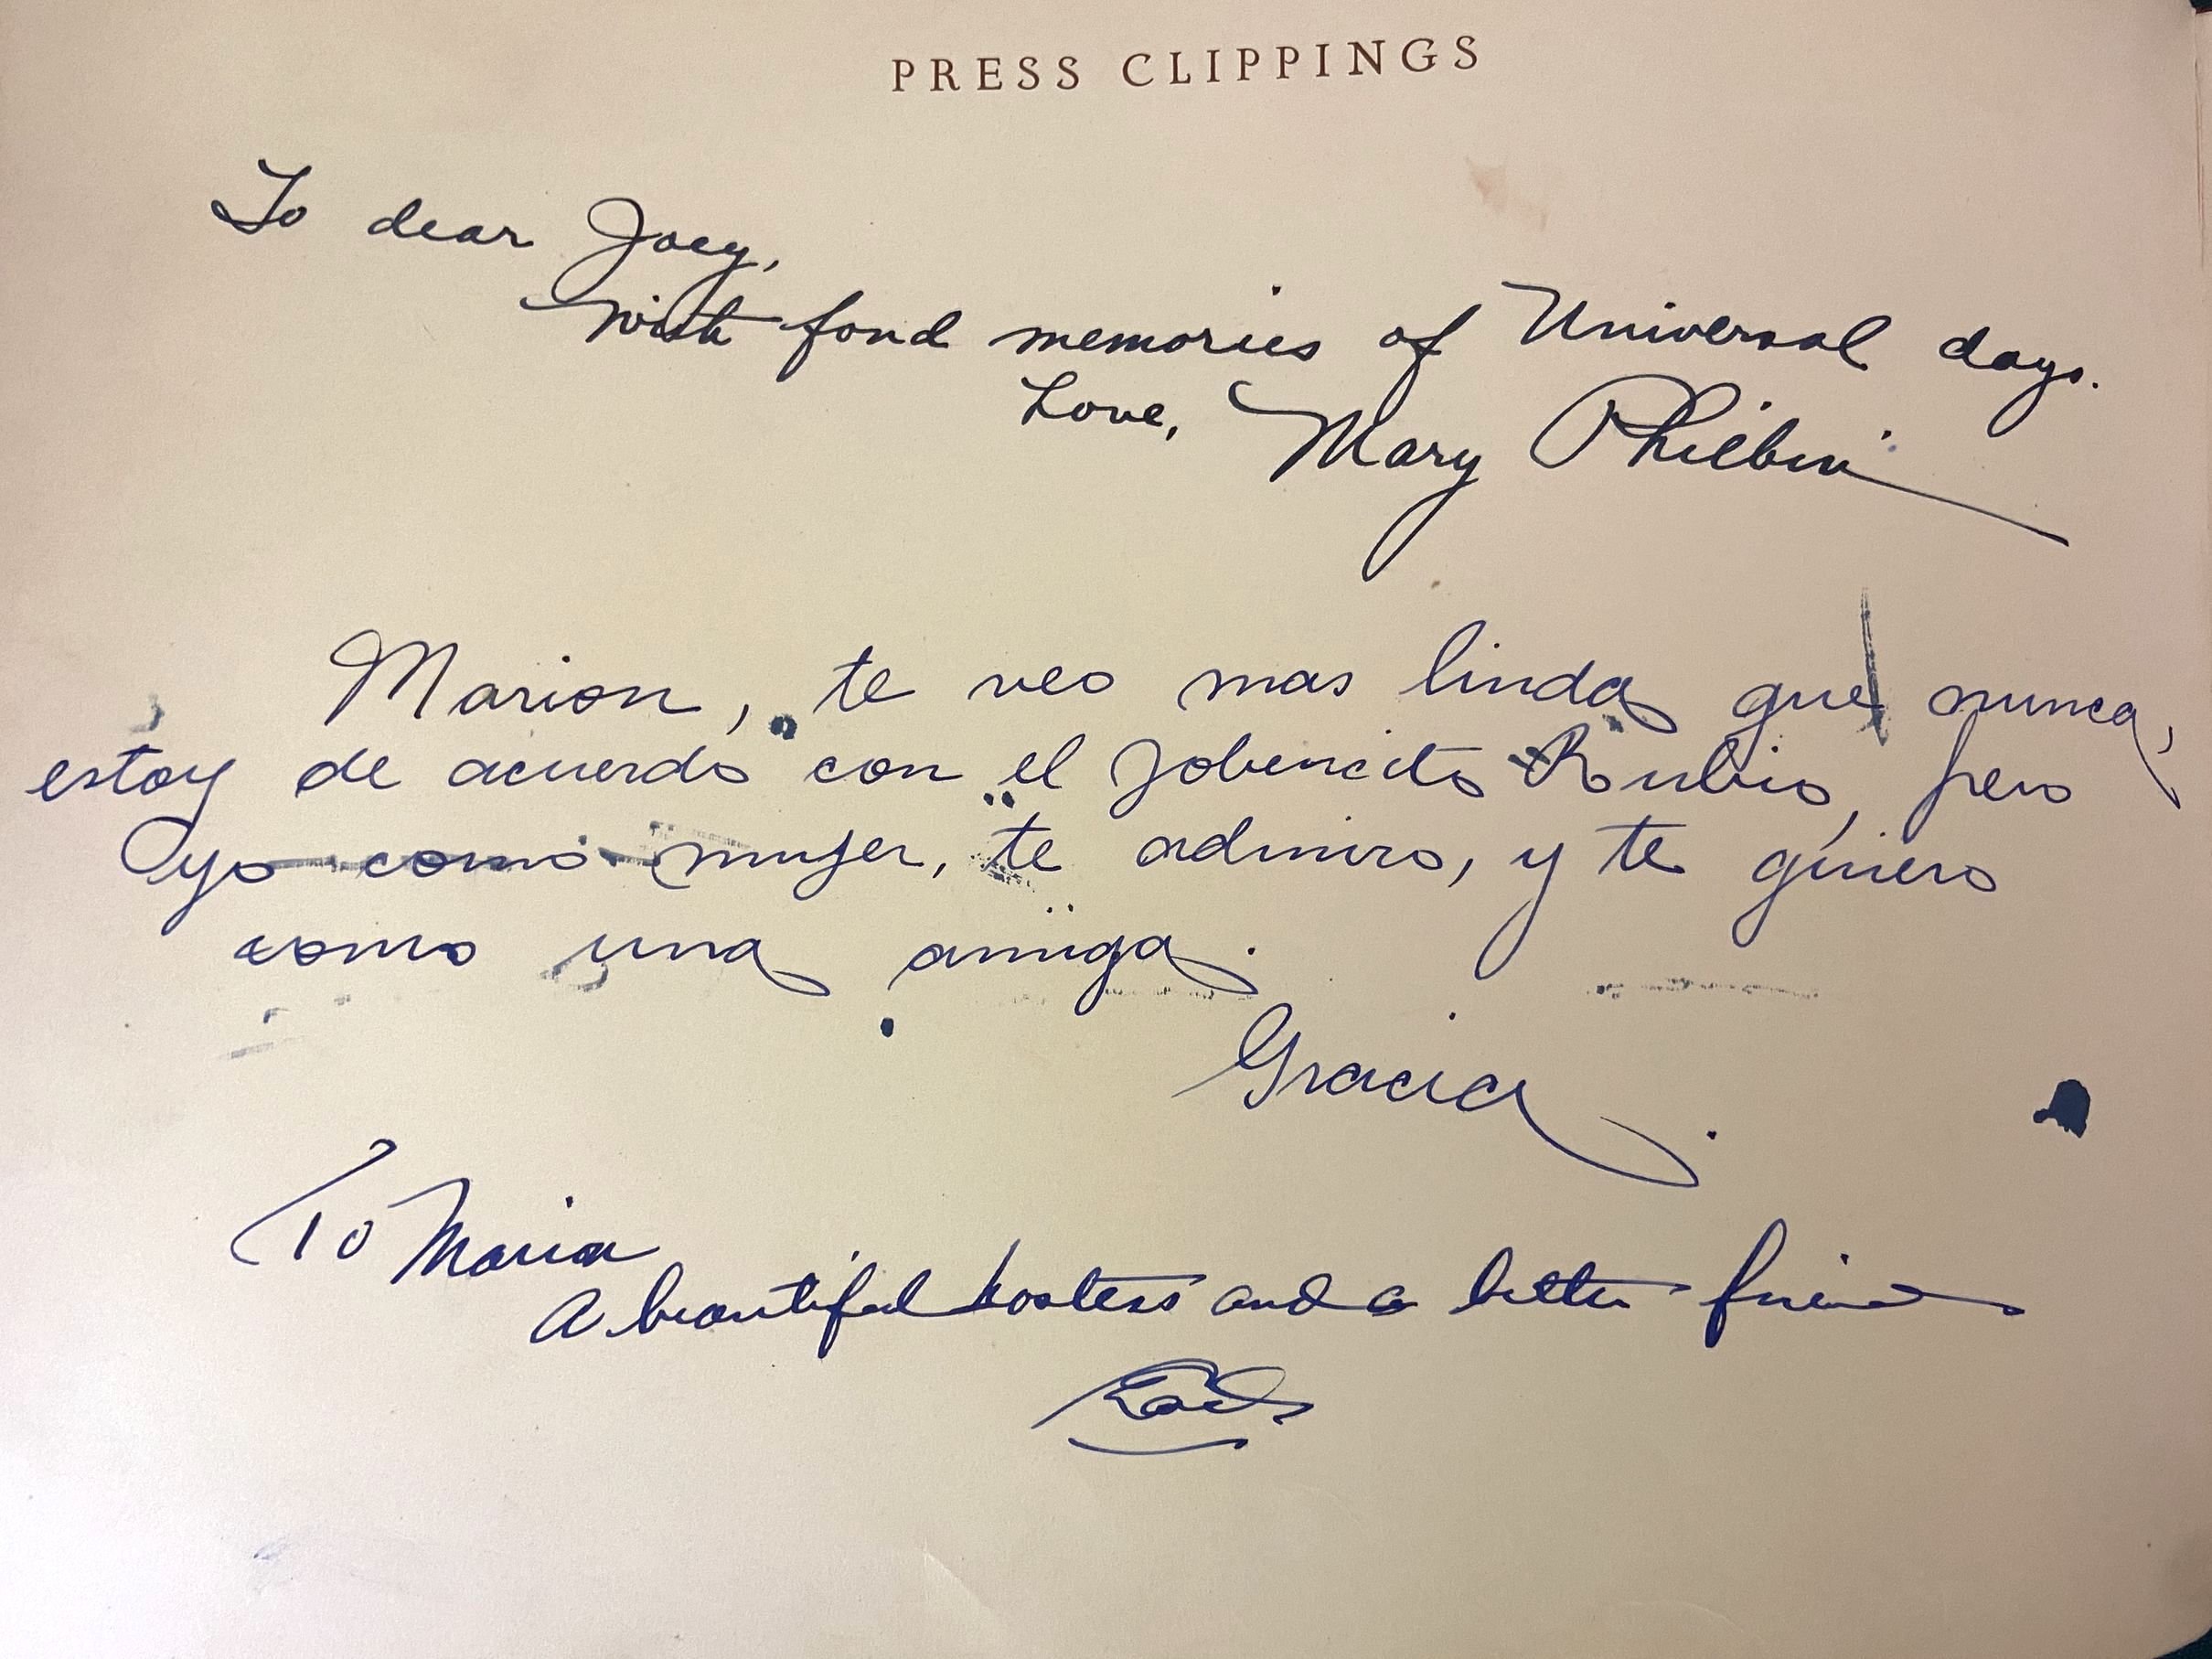 PRESS CLIPPINGS
To dear Joey,
With fond memories of Universal days.
Love, Mary Philbin
Marion, te veo mas linda que nunca,
estoy de acuerdo con el jobencito Rubio, pero
yo como mujer, te admiro, y te quiero
como una amiga.
Gracia
To Maria
A beautiful hostess and a better friend